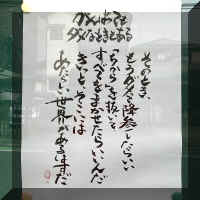 がんばっても
ダメなときもある
そのとき、
もうダメだと降参したらいい
「ちから」を抜いて
すべてをまかせたらいいんだ
きっとそこには
あたらしい世界があるはずだ